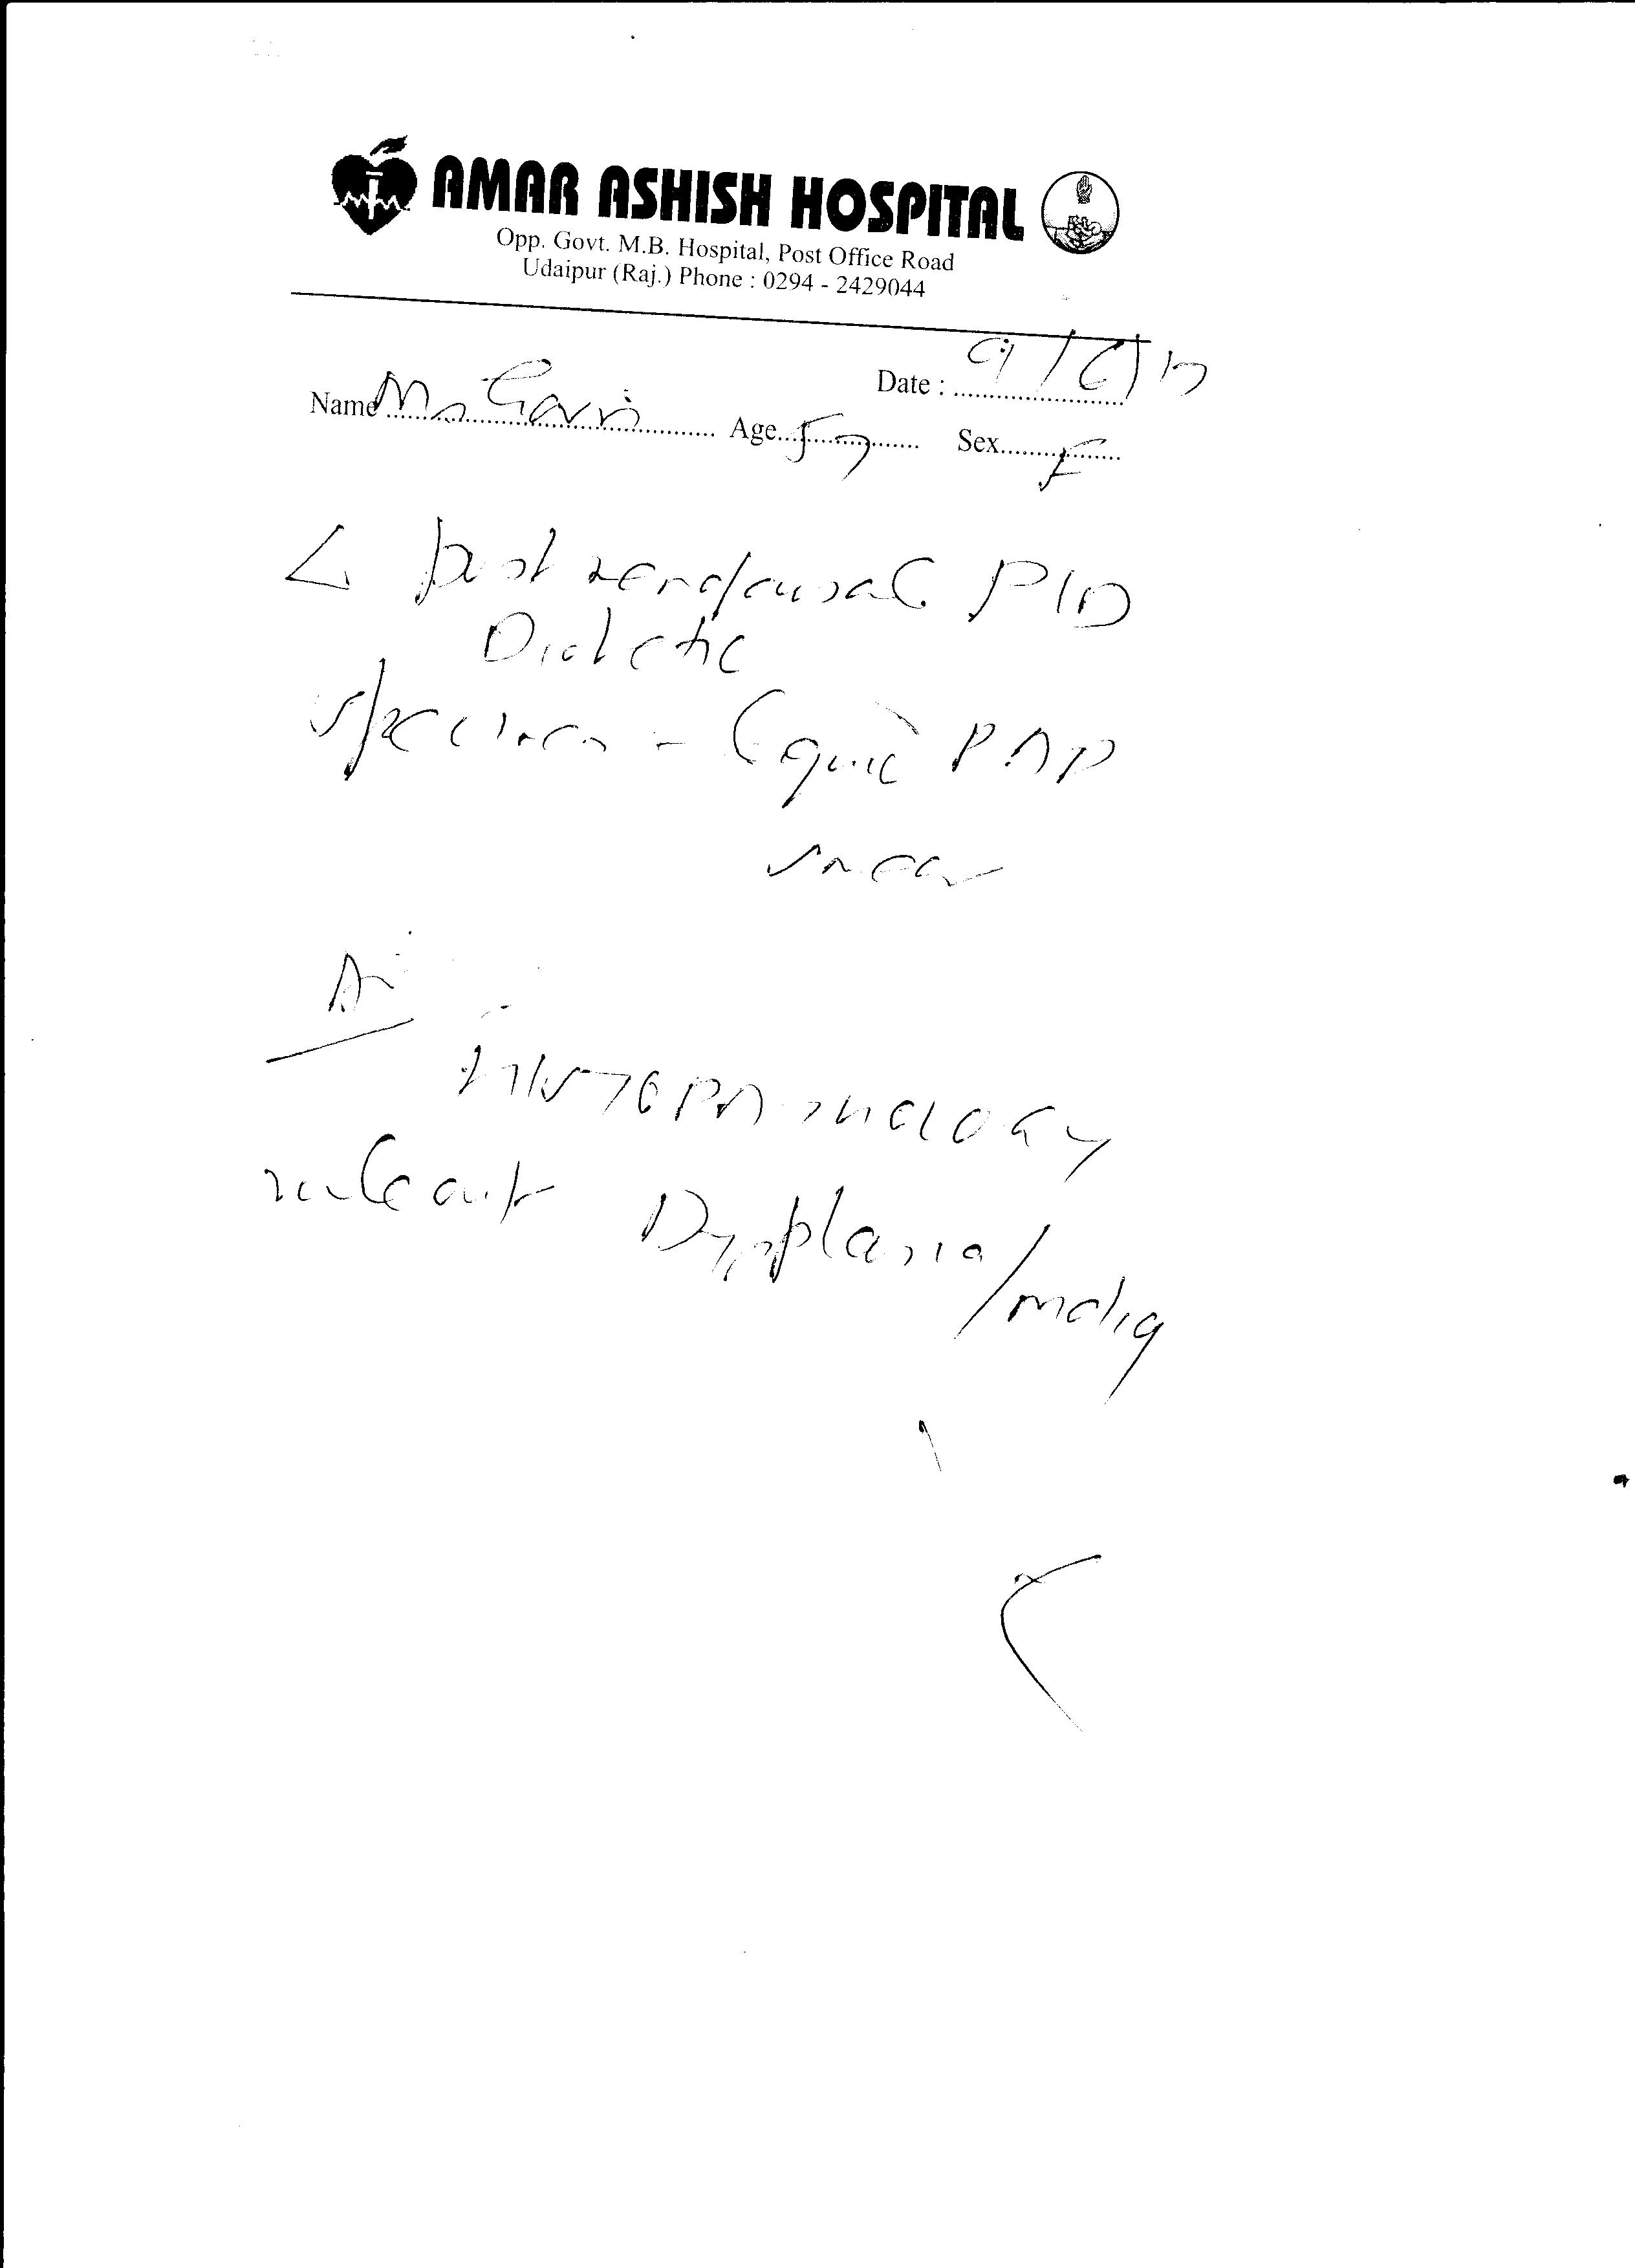 AMAR ASHISH HOSPITAL
Opp. Govt. M.B. Hospital, Post Office Road
Udaipur (Raj.) Phone : 0294 - 2429044
Date : 9/6/17
Name Mrs Gavri Age 57 Sex F
post menopausal PID
Diabetic
specimen - Liquid PAP
smear
HISTOPATHOLOGY
rule out Dysplasia/malig